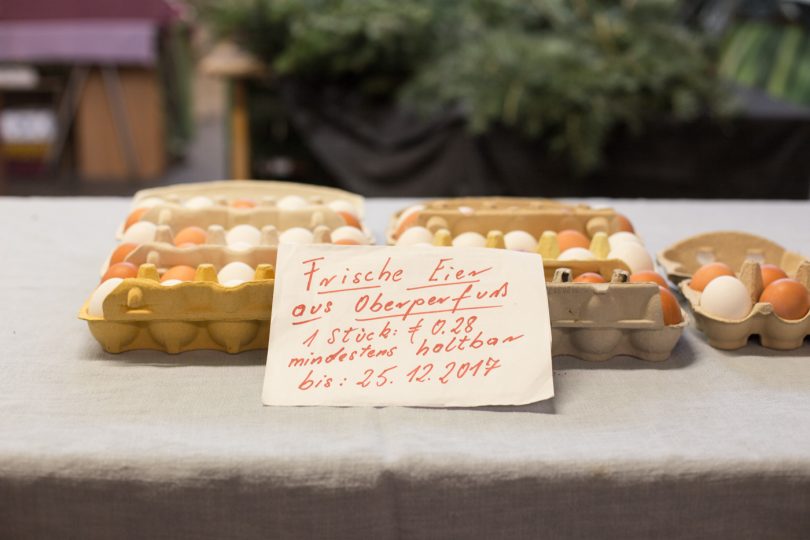 Frische Eier
aus Oberperfuß
1 Stück: € 0.28
mindestens haltbar
bis: 25. 12. 2017